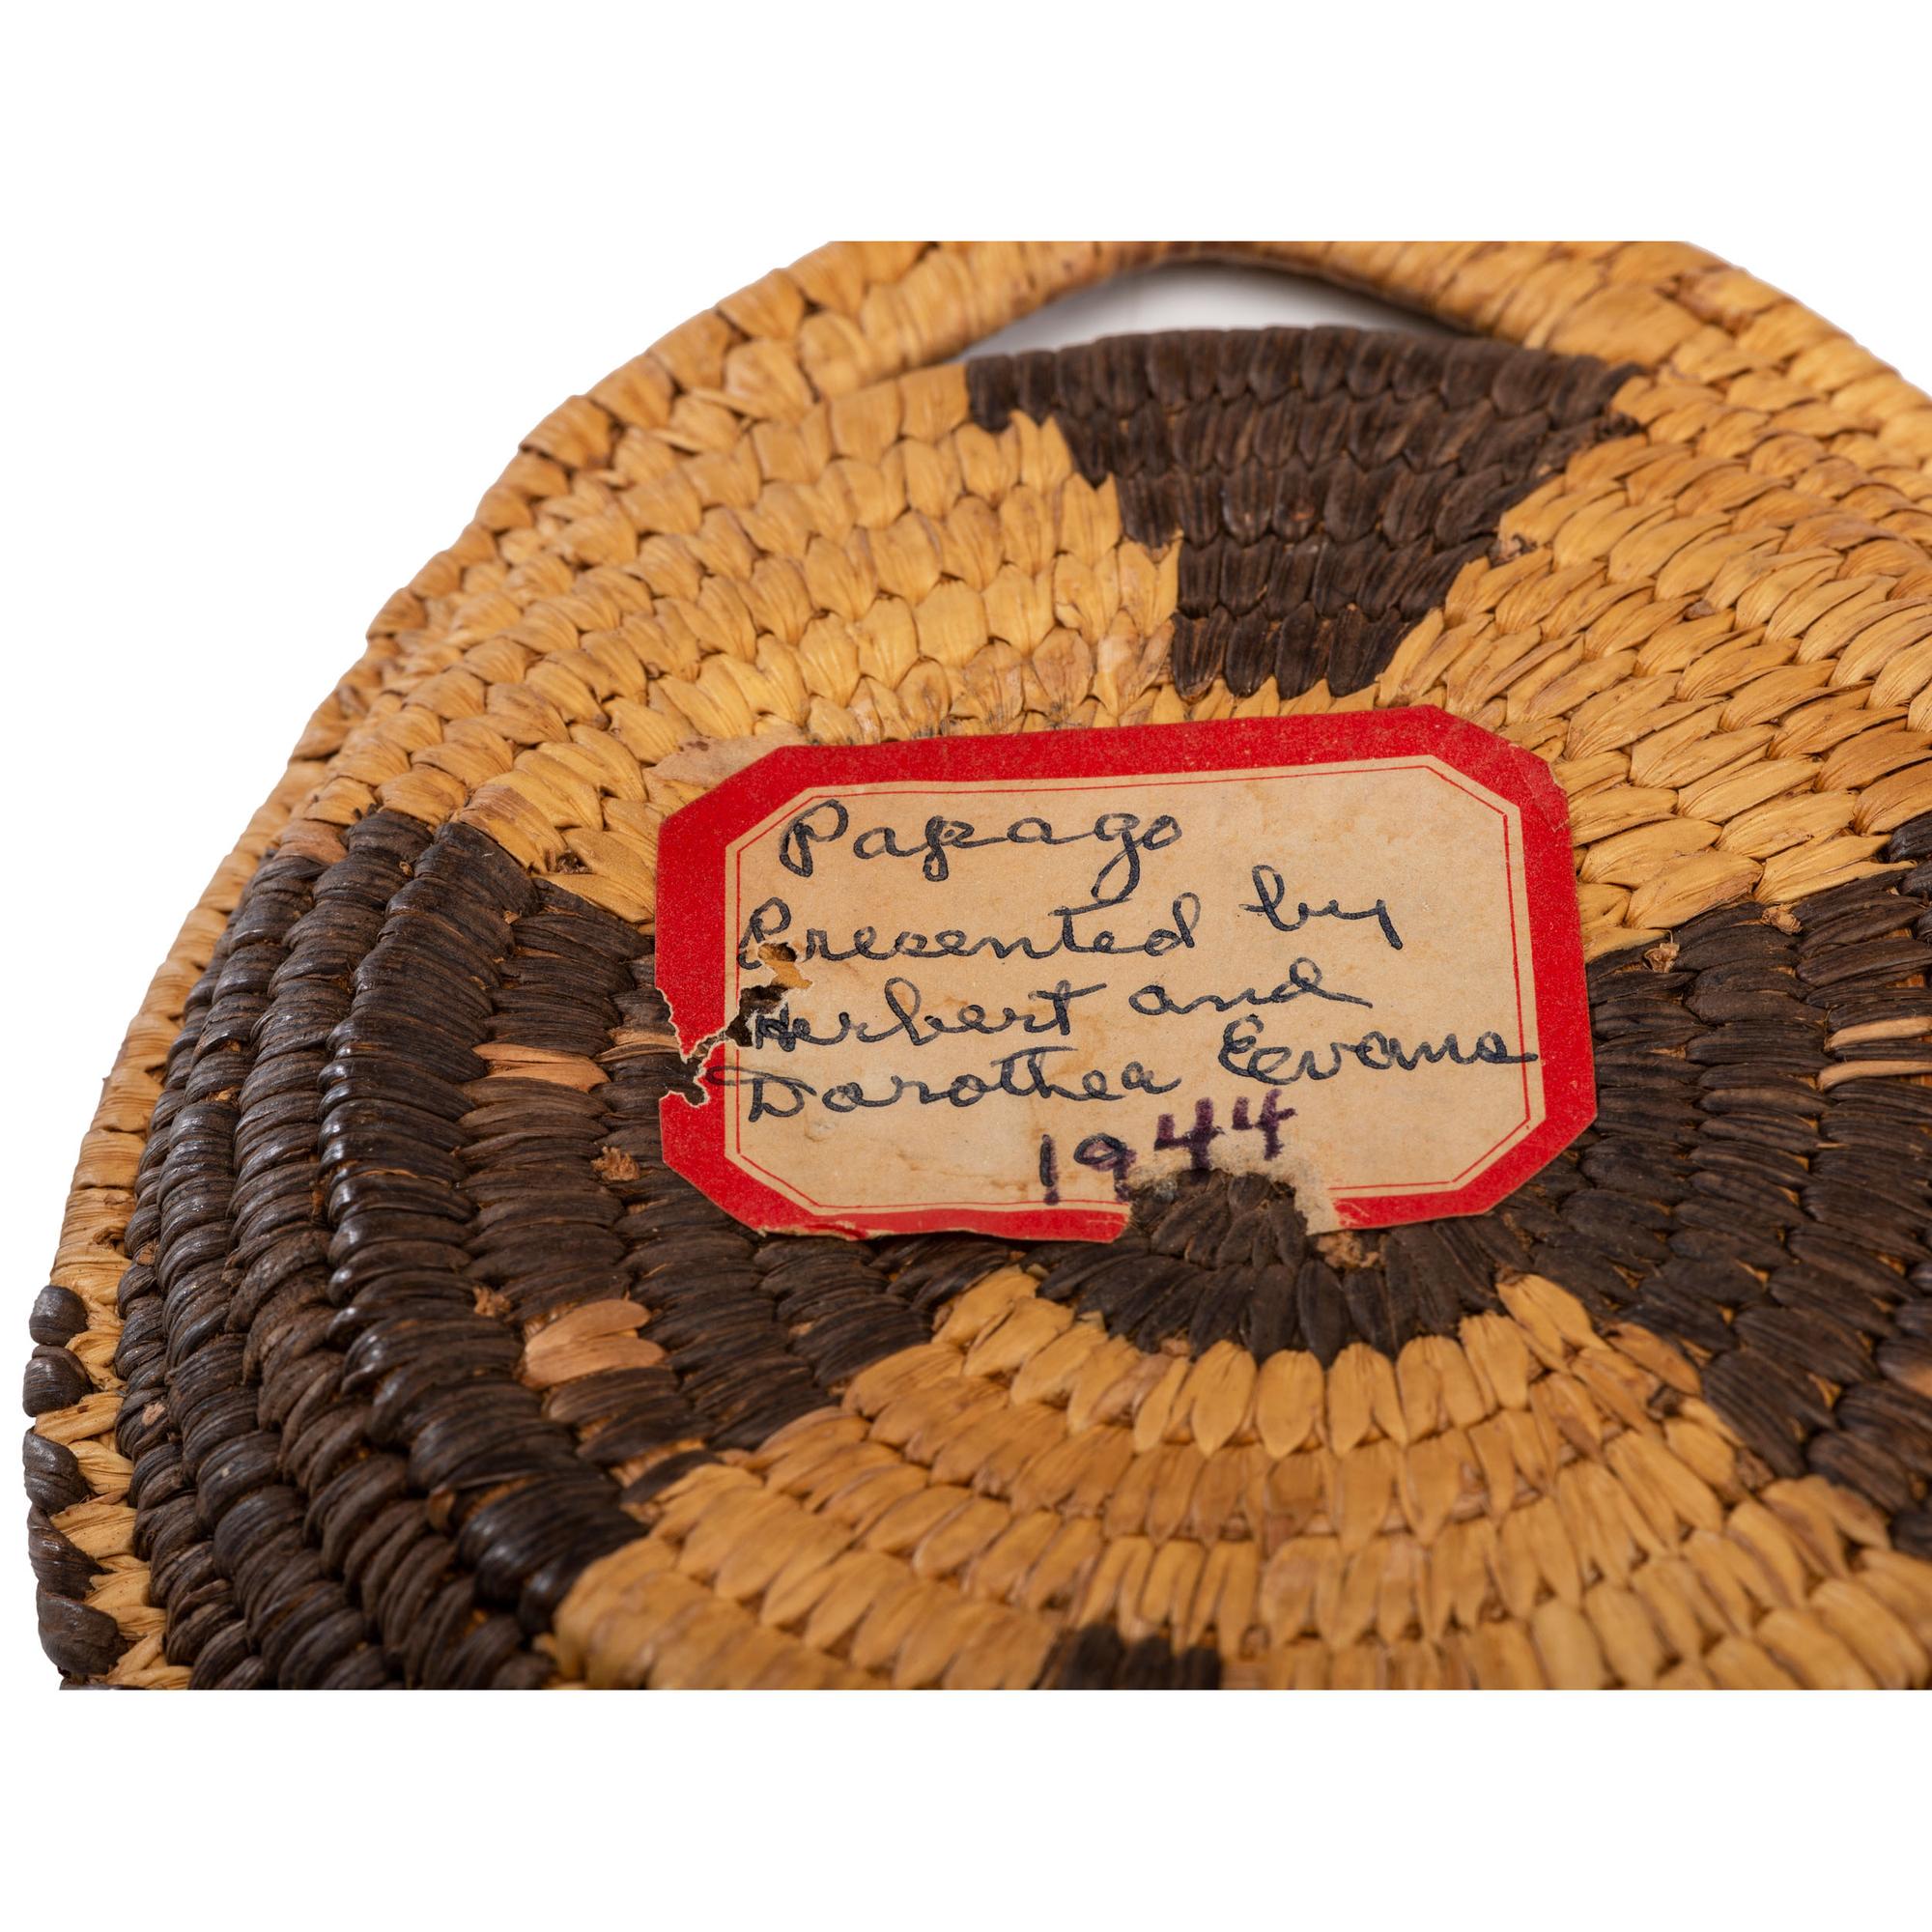 Papago
Presented by
Herbert and
Dorothea Evans
1944